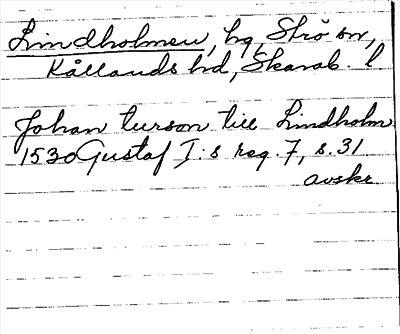 Lindholmen, hg, Strö sn,
Kållands hd, Skarab. l.
Johan Turson till Lindholm
1530 Gustaf I:s reg. 7, s. 31
avskr